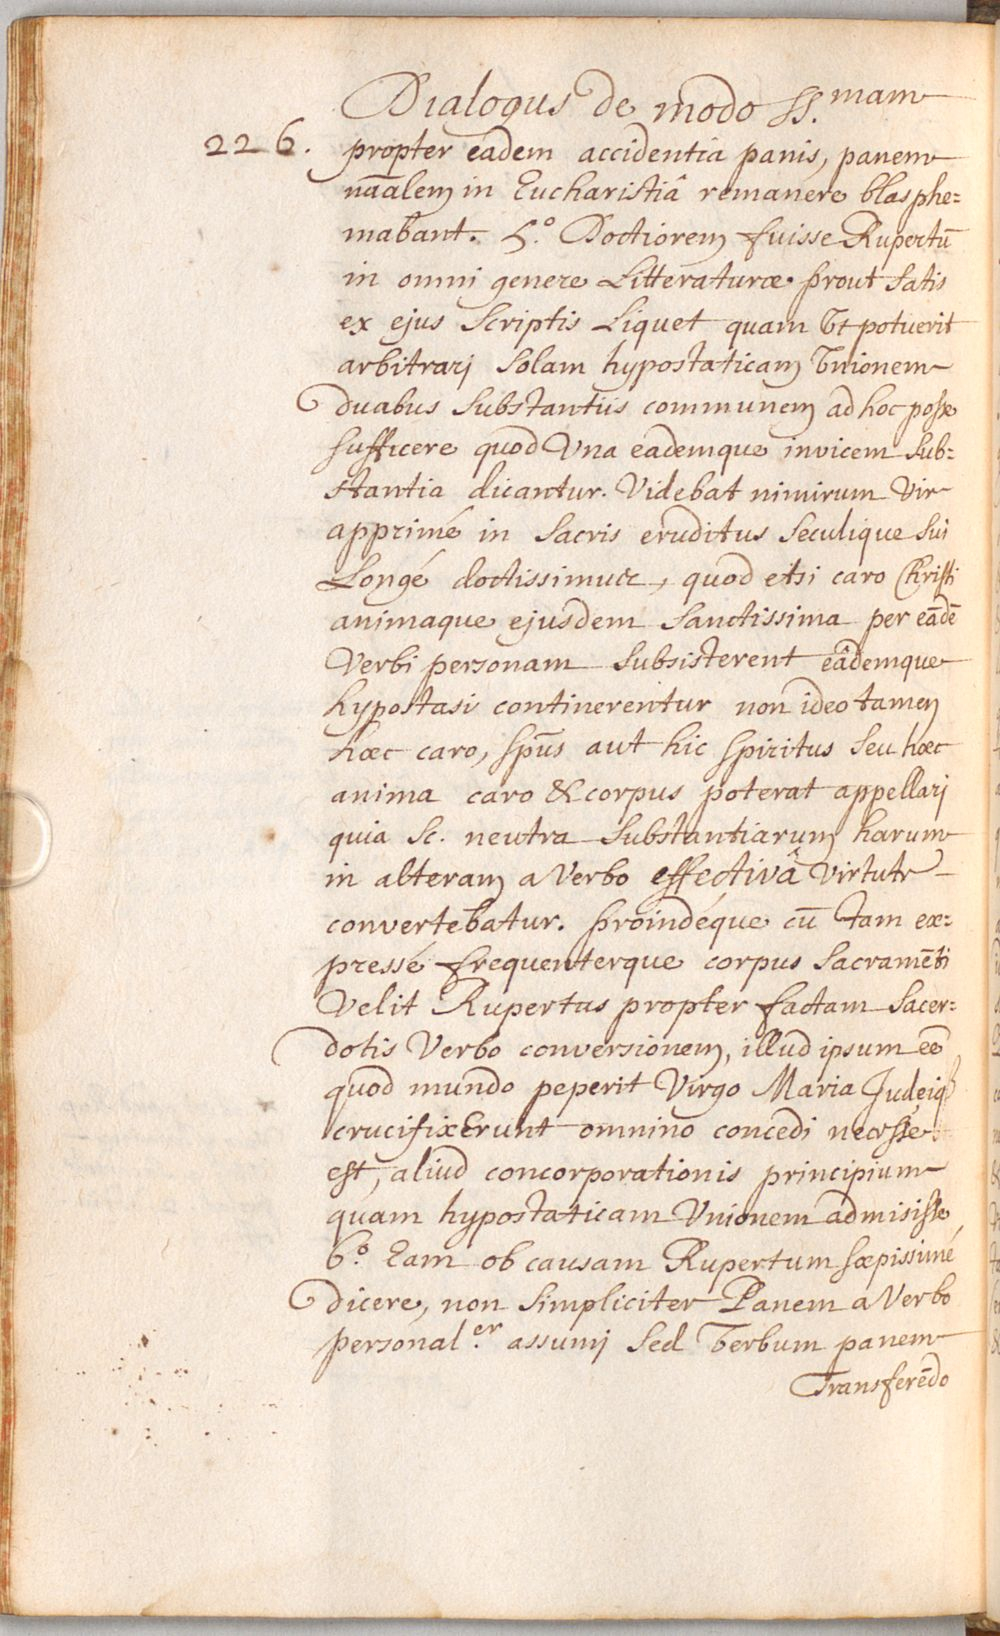 Dialogus de modo SS.mam
226.
propter eadem accidentia panis, panem
nāalem in Eucharistiâ remanere blasphe=
mabant. 5.º Doctiorem fuisse Rupertū
in omni genere Litteraturæ prout satis
ex ejus Scriptis Liquet quam Vt potuerit
arbitrari solam hypostaticam Vnionem
duabus substantiis communem ad hoc posse
sufficere quod Vna eademque invicem sub=
stantia dicantur. Videbat nimirum Vir
apprimé in Sacris eruditus Seculique sui
Longé doctissimus, quod etsi caro Christi
animaque ejusdem Sanctissima per eādē
Verbi personam subsisterent eâdemque
hypostasi continerentur non ideo tamen
hæc caro, spūs aut hic spiritus seu hæc
anima caro & corpus poterat appellari
quia sc. neutra substantiarum harum
in alteram a Verbo effectivâ Virtute
convertebatur. proindéque cū tam ex=
pressé frequenterque corpus Sacramēti
Velit Rupertus propter factam Sacer=
dotis Verbo conversionem, illud ipsum eē
quod mundo peperit Virgo Maria Judeiq
crucifixerunt omnino concedi necesse
est, aliud concorporationis principium
quam hypostaticam Vnionem admisisse
6.º Eam ob causam Rupertum sæpissimé
dicere, non simpliciter Panem a Verbo
personal.er assumi sed Verbum panem
Transferēdo